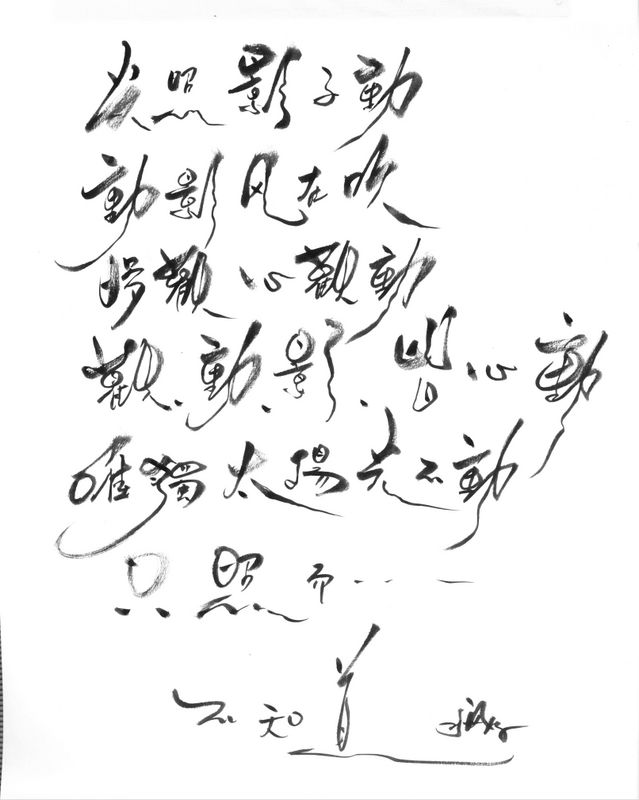 光照影子動
動影风在吹
好觀心觀動
觀、動、影、皆心動
唯獨太揚光不動
只照而……一
不知道